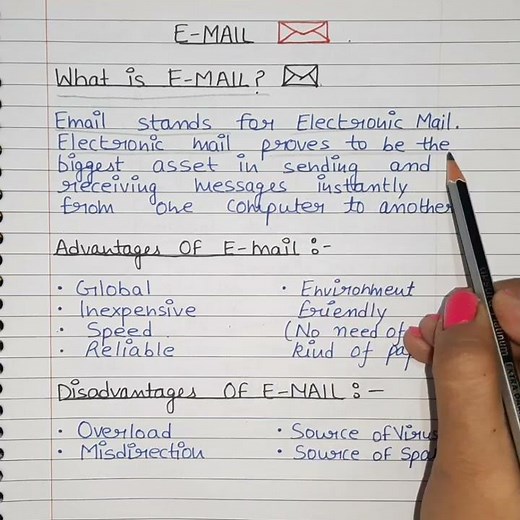 E-MAIL
What is E-MAIL?
Email stands for Electronic Mail.
Electronic mail proves to be the
biggest asset in sending and
receiving messages instantly
from one computer to another
Advantages OF E-mail :-
• Global
• Inexpensive
• Speed
• Reliable
• Environment
friendly
(No need of
kind of
Disadvantages OF E-MAIL :-
• Overload
• Misdirection
• Source of Virus
• Source of